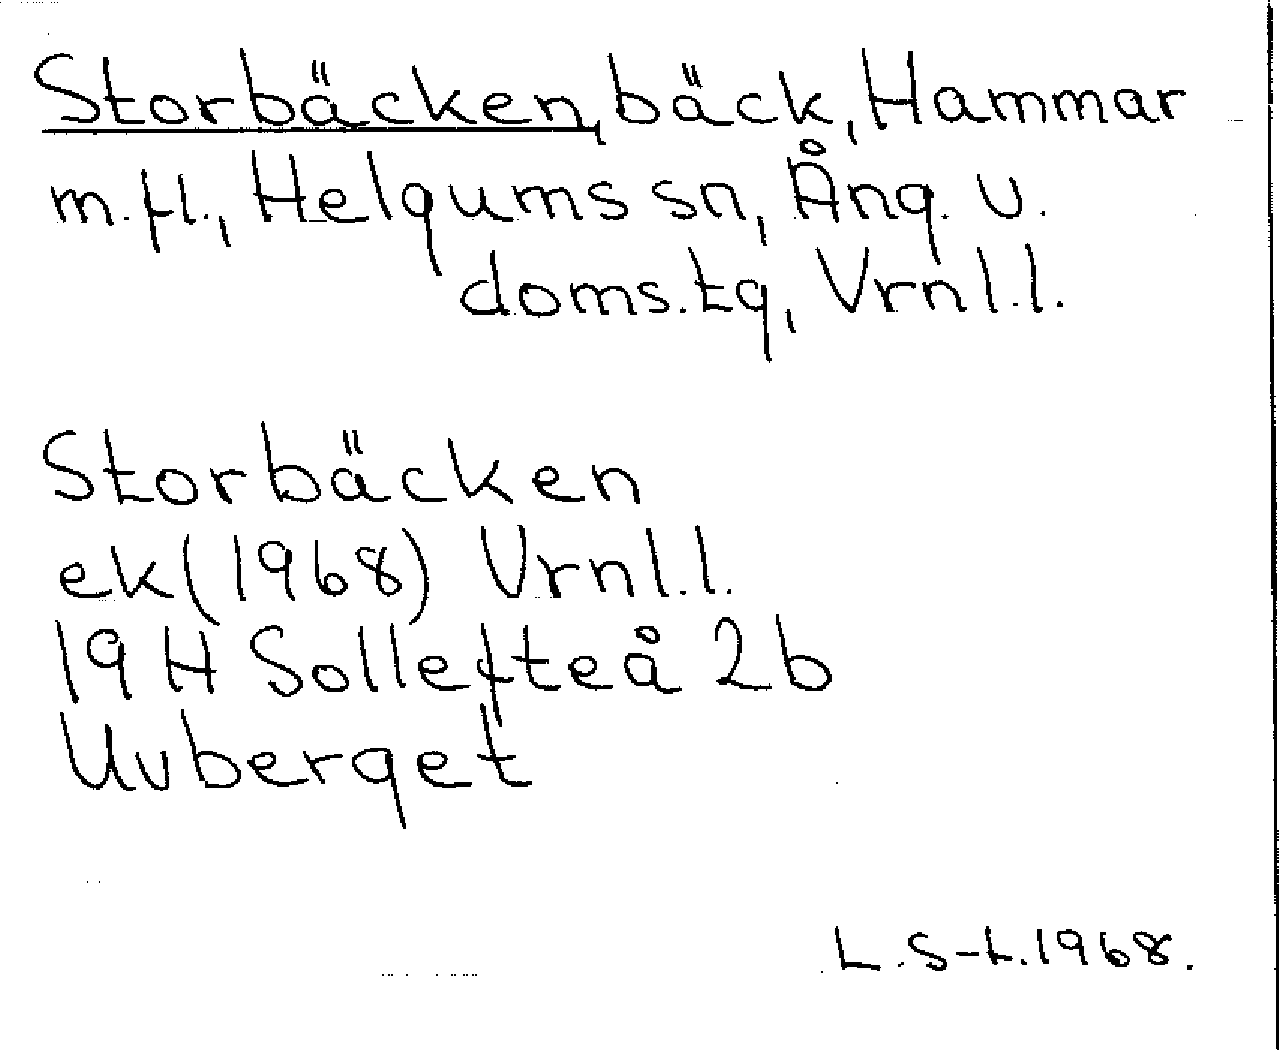 Storbäcken, bäck, Hammar
m.fl., Helgums sn, Ång. v.
doms.tg, Vrnl.l.
Storbäcken
ek(1968) Vrnl.l.
19 H Sollefteå 2b
Uvberget
L.S-L.1968.